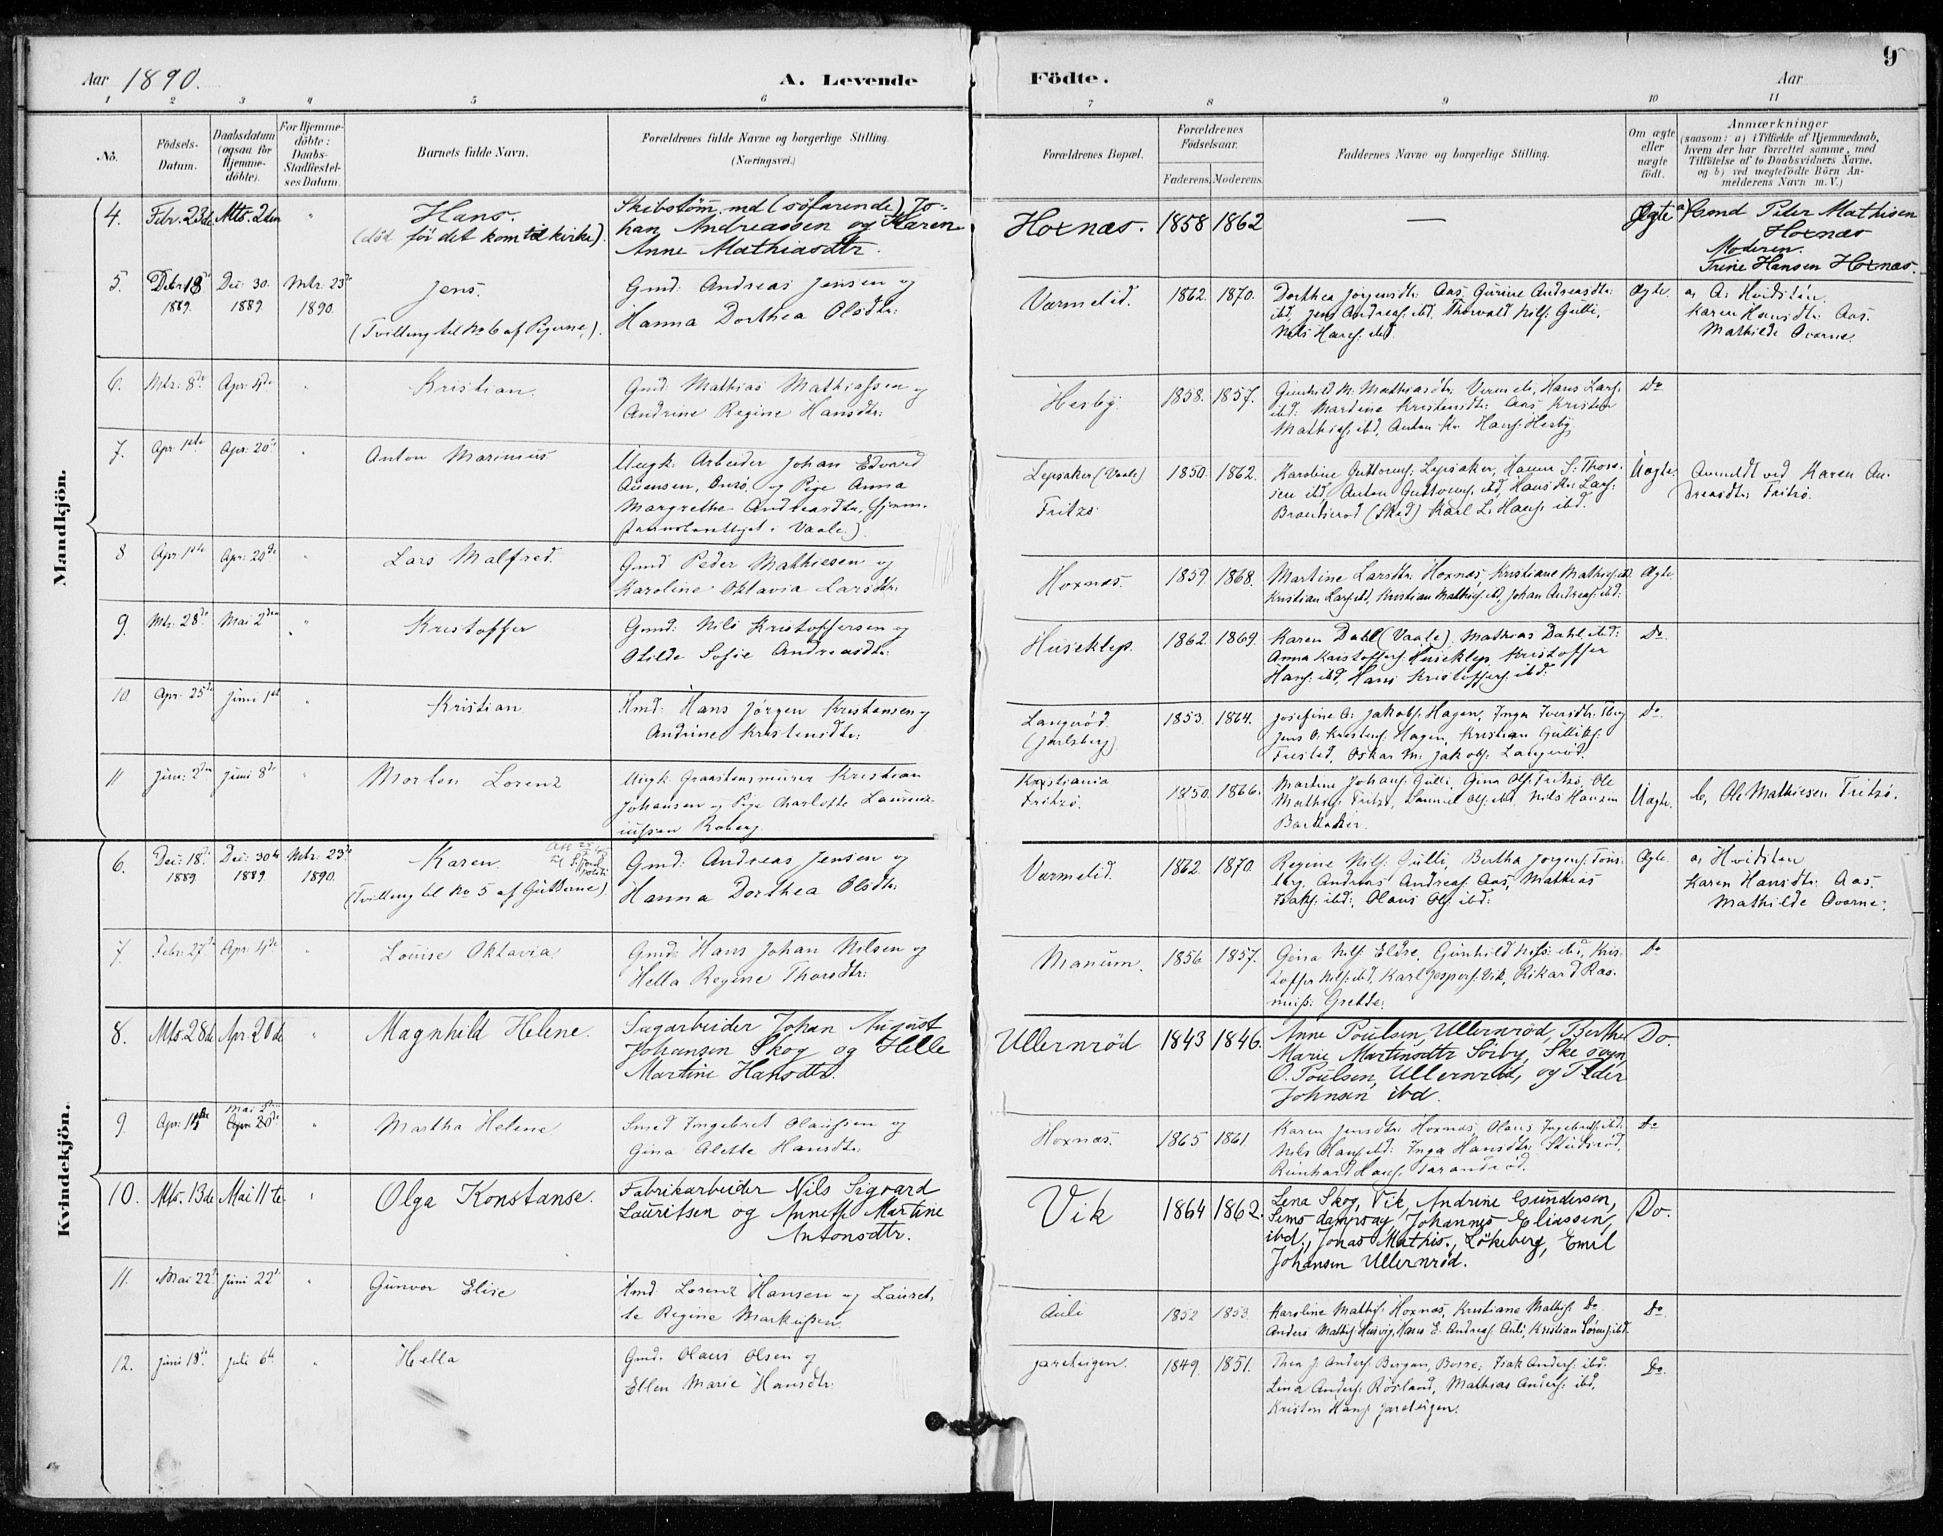 Aar 1890.
A. Levende
Födte.
Aar
9
1 2 3 4 5 6 7 8 9 10 11
No.
Födsels-
Datum.
Daabsdatum
(ogsaa for
Hjemme-
döbte).
For Hjemme-
döbte:
Daabs-
Stadfæstel-
ses Datum.
Barnets fulde Navn.
Forældrenes fulde Navne og borgerlige Stilling.
(Næringsvei.)
Forældrenes Bopæl.
Forældrenes
Födselsaar.
Faderens. Moderens.
Faddernes Navne og borgerlige Stilling.
Om ægte
eller
uægte
födt.
Anmærkninger
(saasom: a) i Tilfælde af Hjemmedaab,
hvem der har forrettet samme, med
Tilföielse af to Daabsvidners Navne.
og b) ved uægtefödte Börn An-
melderens Navn m. V.)
Mandkjön.
4. Febr. 23de Mts. 2den "
Hans.
(död för det kom til kirke).
Skibstöm.md (söfarende) Jo-
han Andreassen og Karen
Anne Mathiasdtr.
Hoxnæs. 1858 1862 —
Ægte
a) Gmd Peter Mathisen
Hoxnæs
Moderen.
Trine Hansen Hoxnæs.
5. Debr. 18de 1889. Dec: 30. 1889. Mtr: 23de 1890.
Jens.
(Tvilling til No 6 af Pigerne.).
Gmd: Andreas Jensen og
Hanna Dorthea Olsdtr:
Værmelid. 1862. 1870.
Dorthea Jorgensdtr: Aas, Gurine Andreasdtr:
ibd, Jens Andreas: ibd, Thorvald Nils: Gulli,
Nils Hans: ibd.
Ægte.
a, A: Hvidsten,
Karen Hansdtr: Aas.
Mathilde Ovorne.
6. Mtr: 8de Apr: 4de "
Kristian.
Gmd: Mathias Mathiassen og
Andrine Regine Hansdtr:
Hesby. 1858. 1857.
Gunhild M. Mathiasdtr: Hans Lars:
ibd: Martine Kristensdtr: Aas Kristen
Mathias: ibd, Anton Hans: Hesby,
Do
7. Apr: 1ste Apr: 20de "
Anton Marinius
Ungk: Arbeider Johan Edvard
og Pige Anna
Margrethe Andreasdtr,
Vaale)
Lepsaker (Vaale)
Fritzö
1850. 1862.
Karoline Guttorms: Lepsaker, Thors-
sen ibd, Anton Guttorms: ibd, Hans Lars:
(Sked) Karl L. Hans: ibd.
Uægte.
Anmeldt ved Karen An-
dreasdtr: Fritzö.
8 Apr: 1ste Apr: 20de "
Lars Malfred.
Gmd Peder Mathiesen og
Karoline Oktavia Larsdtr:
Hoxnæs. 1859. 1868.
Martine Larsdtr: Hoxnæs, Kristiane Mathis: ibd
Kristian Lars: ibd, Kristian Mathis: ibd, Johan Andreas: ibd:
Ægte
9. Mtr: 28de Mai 2den "
Kristoffer
Gmd: Nils Kristoffersen og
Otilde Sofie Andreasdtr:
Huseklep. 1862. 1869.
Karen Dahl (Vaale), Mathias Dahl ibd:
Anna Kristoffers: Huseklep, Kristoffer
Hans: ibd, Hans Kristoffers: ibd:
Do
10 Apr: 25de Juni 1ste "
Kristian
Hmd: Hans Jörgen Kristansen og
Andrine Kristensdtr:
Langeröd.
(Jarlsberg)
1853. 1864.
Josefine A: Jakobs: Hagen, Inga Iversdtr:
Jens O: Kristens: Hagen, Kristian Gulliks:
Oskar M. Jakobs: Langeröd.
Do
11 Juni: 2den Juni 8de "
Morten Lorenz
Ungk: Graastensmurer Kristian
Johansen og Pige Charlotte Laurenz-
iussen Roberg
Kristiania
Fritzö.
1850. 1866.
Martine Johans: Gulli, Gina Ols: Fritzö, Ole
Mathis: Fritzö, Samuel Ols: ibd. Nils Hansen
Barkaker.
Uægte.
b, Ole Mathiesen Fritzö.
Kvindekjön.
6. Dec: 18de 1889 Dec: 30te 1889 Mtr: 23de 1890.
Karen
(Tvilling til No 5 af Gutterne)
Gmd: Andreas Jensen og
Hanna Dorthea Olsdtr:
Værmelid. 1862. 1870.
Regine Nils: Gulli, Bertha Jorgens: Töns-
berg, Andreas Andreas: Aas, Mathias
Isaks: ibd:, Olaus Ols: ibd:
Ægte.
a, Hvidsten
Karen Hansdtr: Aas.
Mathilde Ovorne.
7. Febr: 27de Apr: 4de "
Louise Oktavia
Gmd: Hans Johan Nilsen og
Hella Regine Thorsdtr:
Manum. 1856. 1857.
Gina Nils: Eldre, Gunhild Nils: ibd, Kris-
toffer Nils: ibd, Karl Jespers: Vik, Rikard Ras-
mus: Grette.
Do
8. Mts. 28de Apr. 20de "
Magnhild Helene.
Sagarbeider Johan August
Johansen Skog og Helle
Martine Hansdtr.
Ullernröd 1843 1846.
Anne Poulsen, Ullernröd, Berthe
Marie Martinsdtr Sörby, Ske sogn,
O. Poulsen, Ullernröd, og Peder
Johnsen ibd.
Do.
9. Mai 2den
"
Martha Helene
Smed Ingebret Olaussen og
Gina Alette Hansdtr:
Hoxnæs. 1865 1861
Karen Jensdtr: Hoxnæs, Olaus Ingebrets: ibd:
Nils Hans: ibd: Inga Hansdtr:
Reinhard Hans: Taranröd.
Do
10. Mts. 13de Mai 11te "
Olga Konstanse.
Fabrikarbeider Nils Sigvard
Lauritsen og Annette Martine
Antonsdtr.
Vik 1864 1862.
Lena Skog, Vik, Andrine Gundersen,
Sems dampsag, Johannes Eliassen,
ibd., Jonas Mathis., Lökeberg, Emil
Johansen Ullernröd.
Do.
11. Mai 22de Juni 22de "
Gunvor Elise
Hmd: Lorenz Hansen og Lauret-
te Regine Markussen
Auli 1852 1853.
Karoline Mathis: Hoxnæs, Kristiane Mathis: Do
Anders Mathis: Husvig, Hans E. Andreas: Auli, Kristian Sörens: ibd.
Do
12. Juni 18de Juli 6te "
Hella
Gmd: Olaus Olsen og
Ellen Marie Hansdtr:
Jareteigen. 1849. 1851.
Thea J. Anders: Bergan, Borre; Isak Anders: ibd.
Lina Anders: Rörland, Mathias Anders: ibd,
Kristen Hans: Jareteigen.
Do